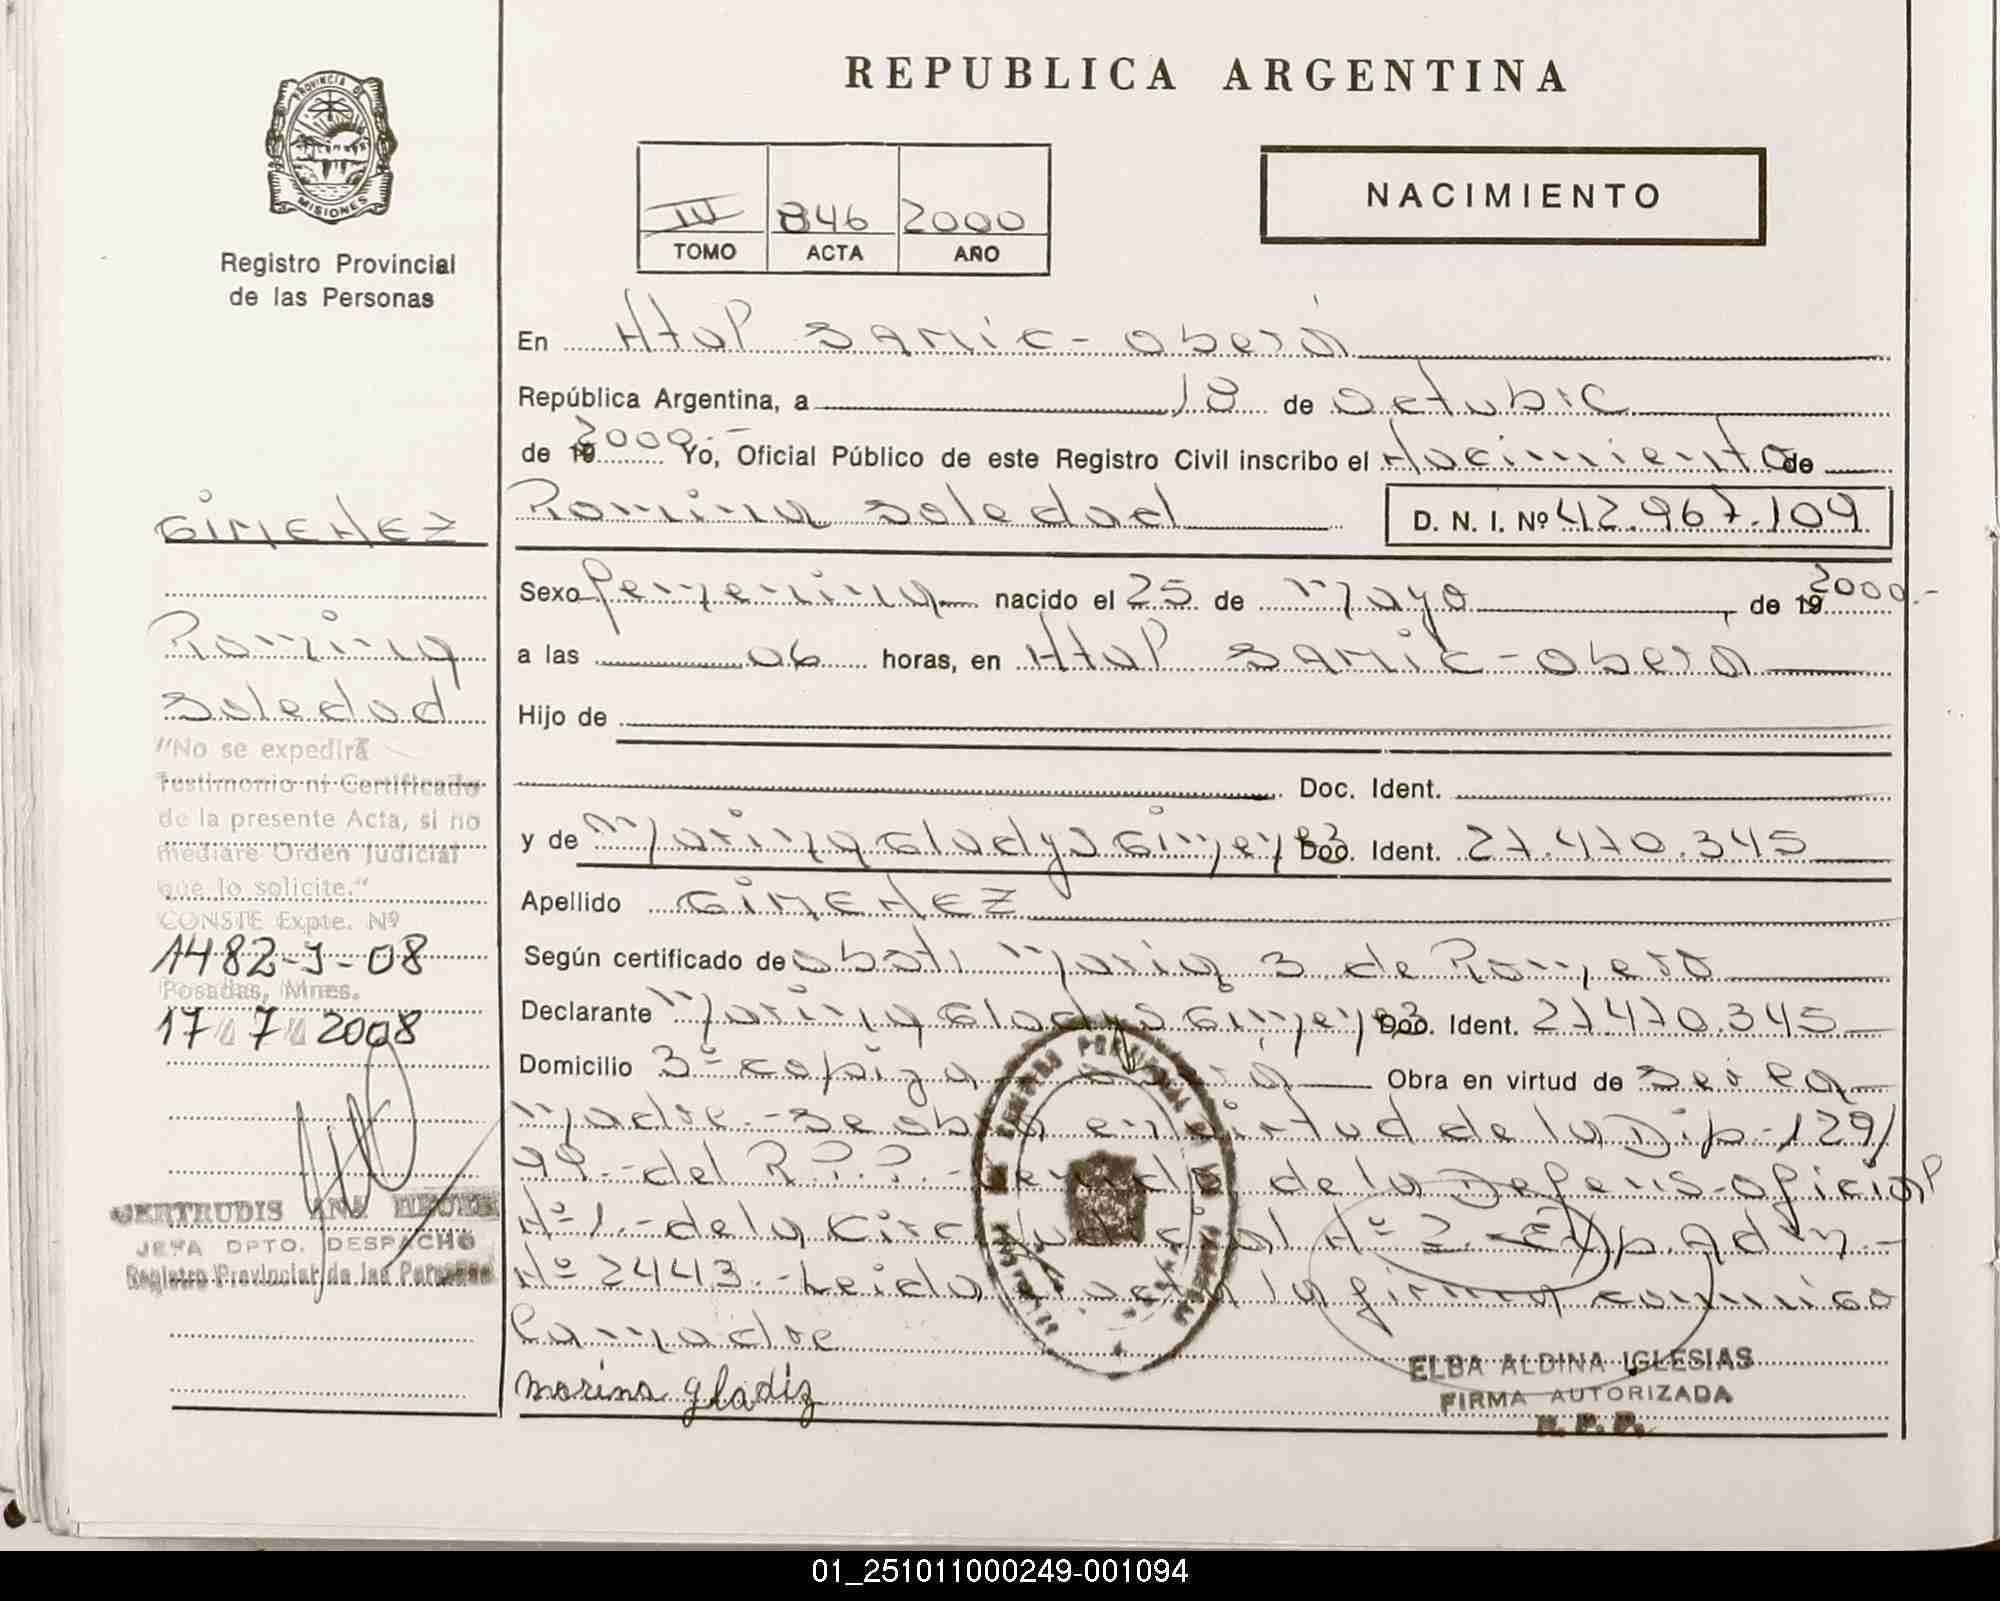 REPUBLICA ARGENTINA
PROVINCIA DE
MISIONES
Registro Provincial
de las Personas
III 846 2000
TOMO ACTA AÑO
NACIMIENTO
En Htal SAMIC - Oberá
República Argentina, a 18 de Octubre
de 19 2000.- Yo, Oficial Público de este Registro Civil inscribo el Nacimiento de
Romina Soledad D. N. I. Nº 42.967.109
Sexo femenina nacido el 25 de Mayo de 19 2000.-
a las 06 horas, en Htal SAMIC - Oberá
Hijo de
Doc. Ident.
y de Marina Gladys Gimenez Doc. Ident. 27.470.345
Apellido GIMENEZ
Según certificado de Obst. Maria S de Romero
Declarante Marina Gladys Gimenez Doc. Ident. 27.470.345
Domicilio 3º Obra en virtud de Ser la
Madre.- Se obra en virtud de la Disp. 129/
99.- del R.P.P.- de la Defens. Oficial
Nº 1.- de la Circ Judicial Nº 2.- Exp. Adm.-
Nº 2443.- Leida el acta la firma conmigo
La madre
Marina gladiz
ELBA ALDINA IGLESIAS
FIRMA AUTORIZADA
R. P. P.
GIMENEZ
Romina
Soledad
"No se expedirá
Testimonio ni Certificado
de la presente Acta, si no
mediare Orden Judicial
que lo solicite."
CONSTE Expte. Nº
1482-J-08
Posadas, Mnes.
17 7 2008
GERTRUDIS ANA
JEFA DPTO. DESPACHO
Registro Provincial de las Personas
01_251011000249-001094